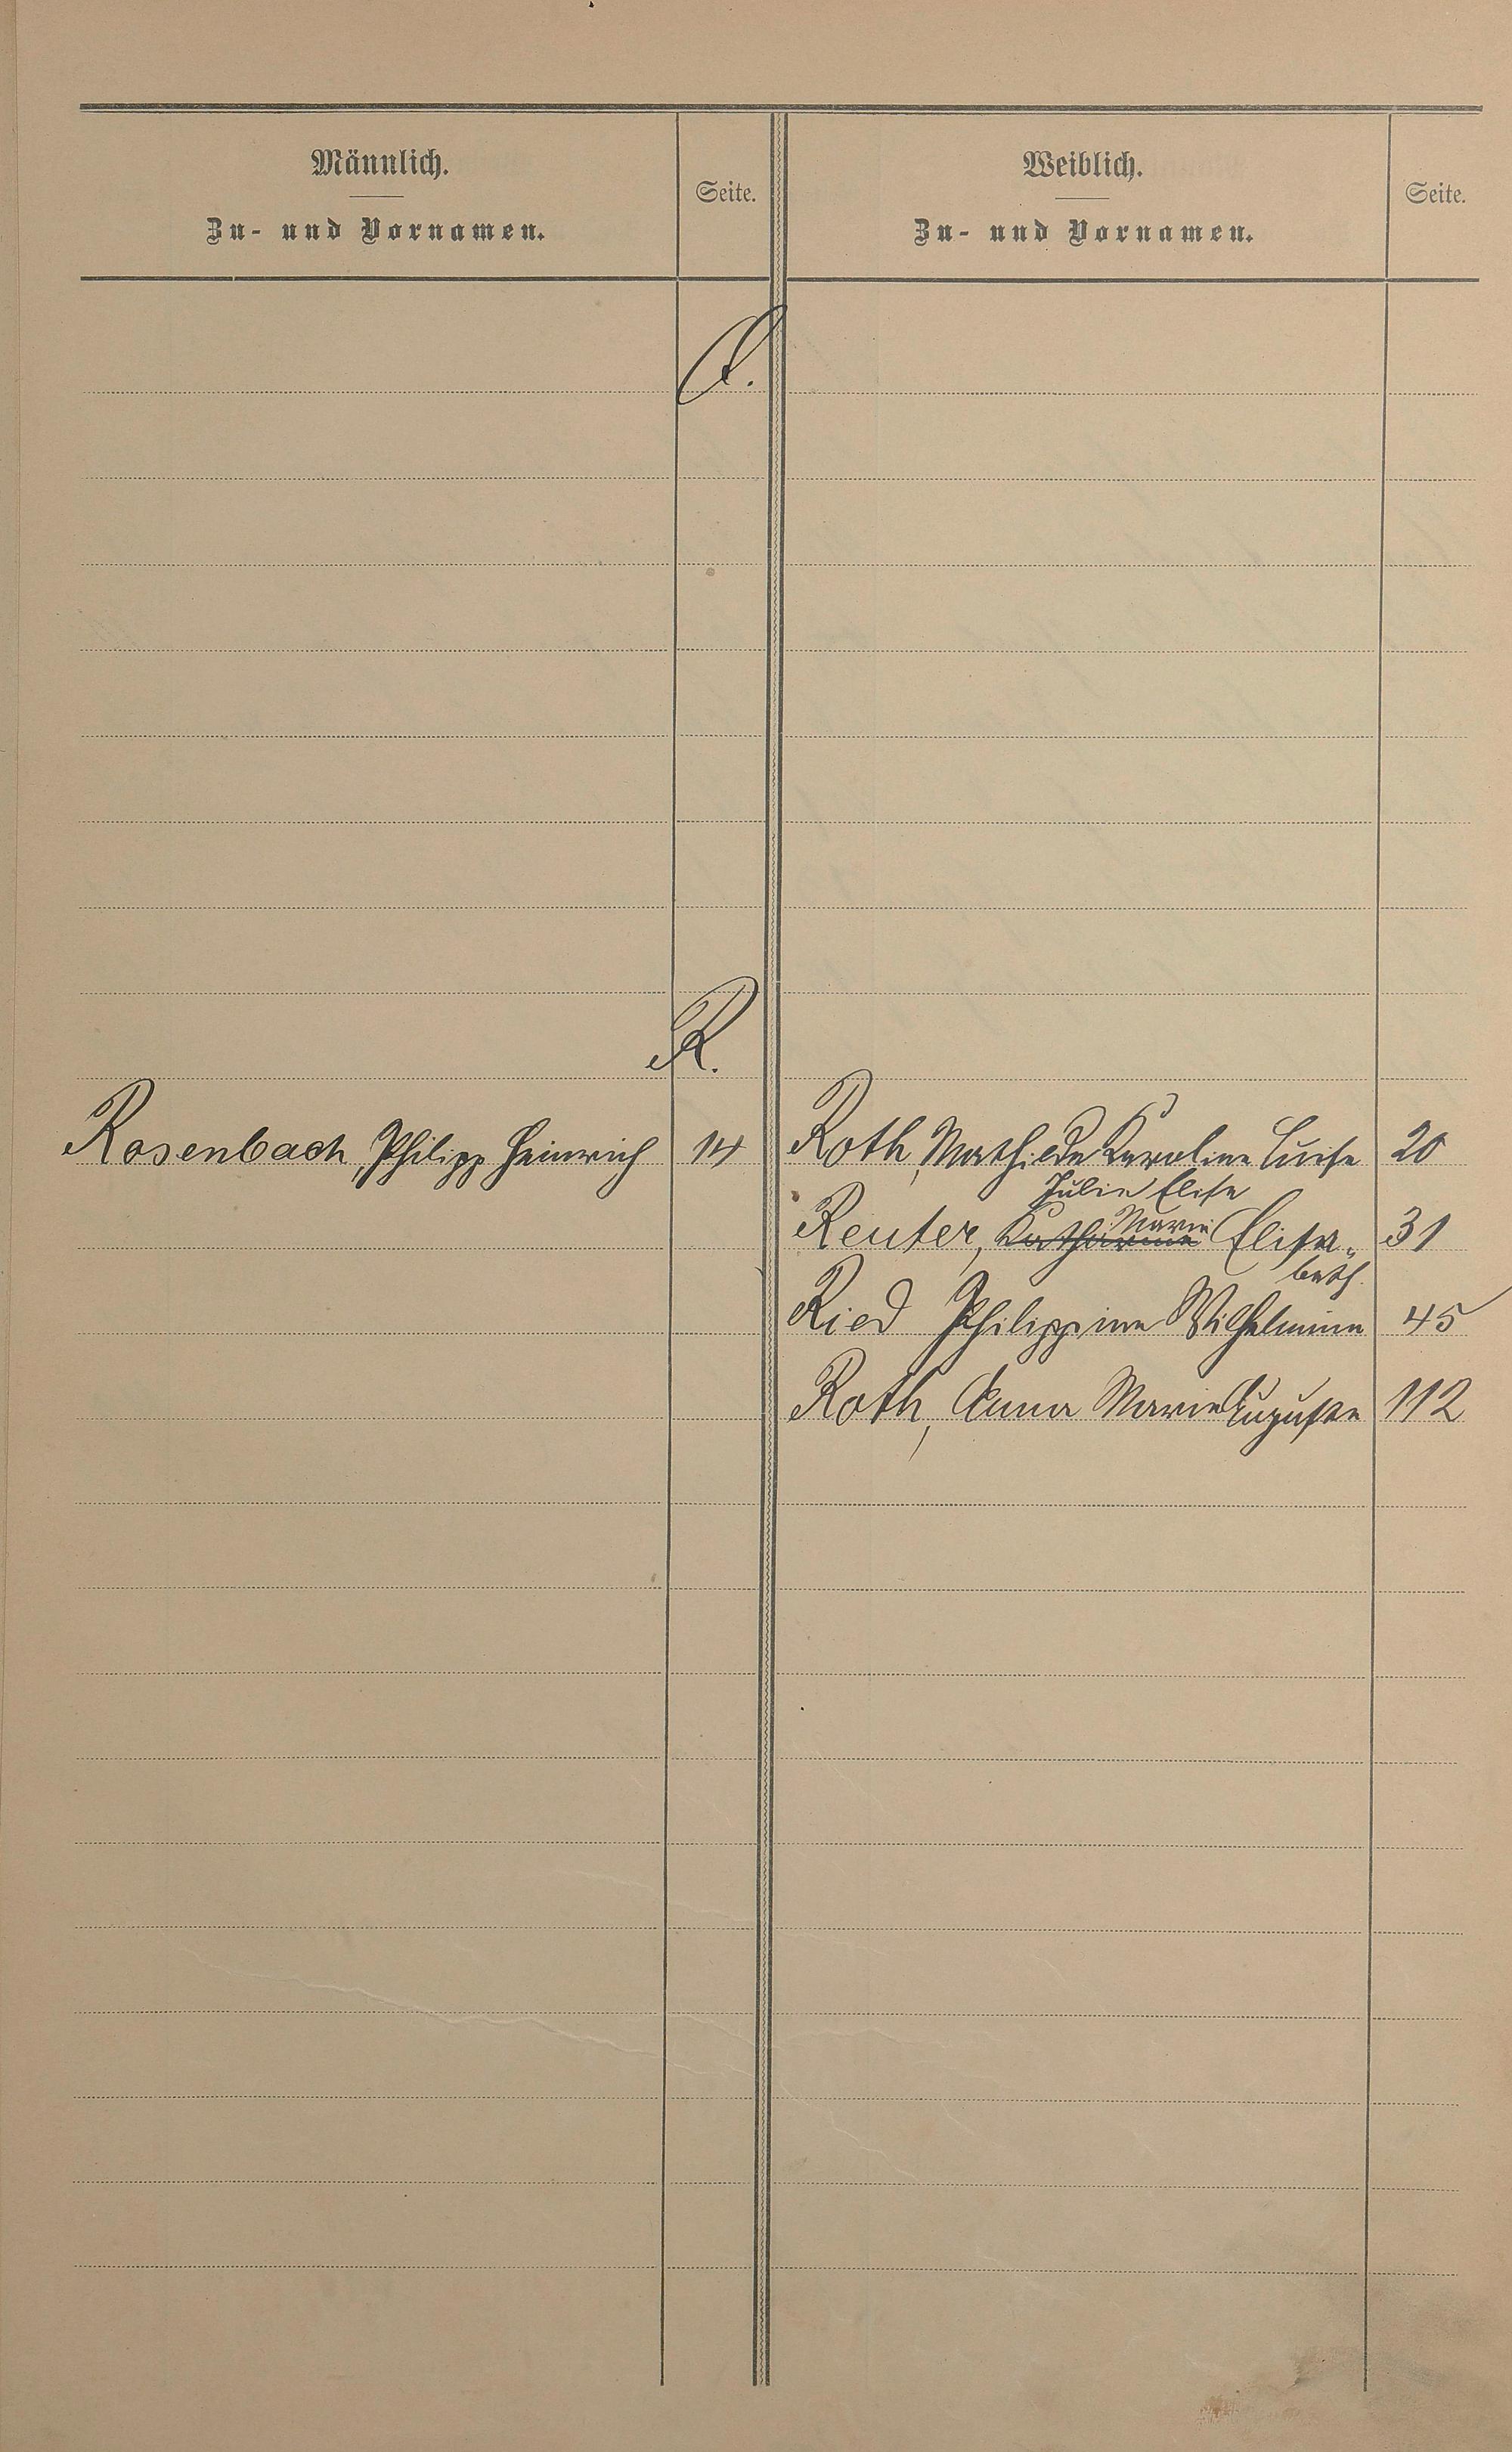 Männlich.
Zu- und Vornamen.
Seite.
Weiblich.
Zu- und Vornamen.
Seite.
Q.
R.
Rosenbach, Philipp Heinrich 14
Roth, Mathilde Karoline Luise 20
Julie Elise
Marie
Reuter, Katharine Elisa- 31
beth.
Ried Philippine Wilhelmine 45
Roth, Anna Marie Auguste 112